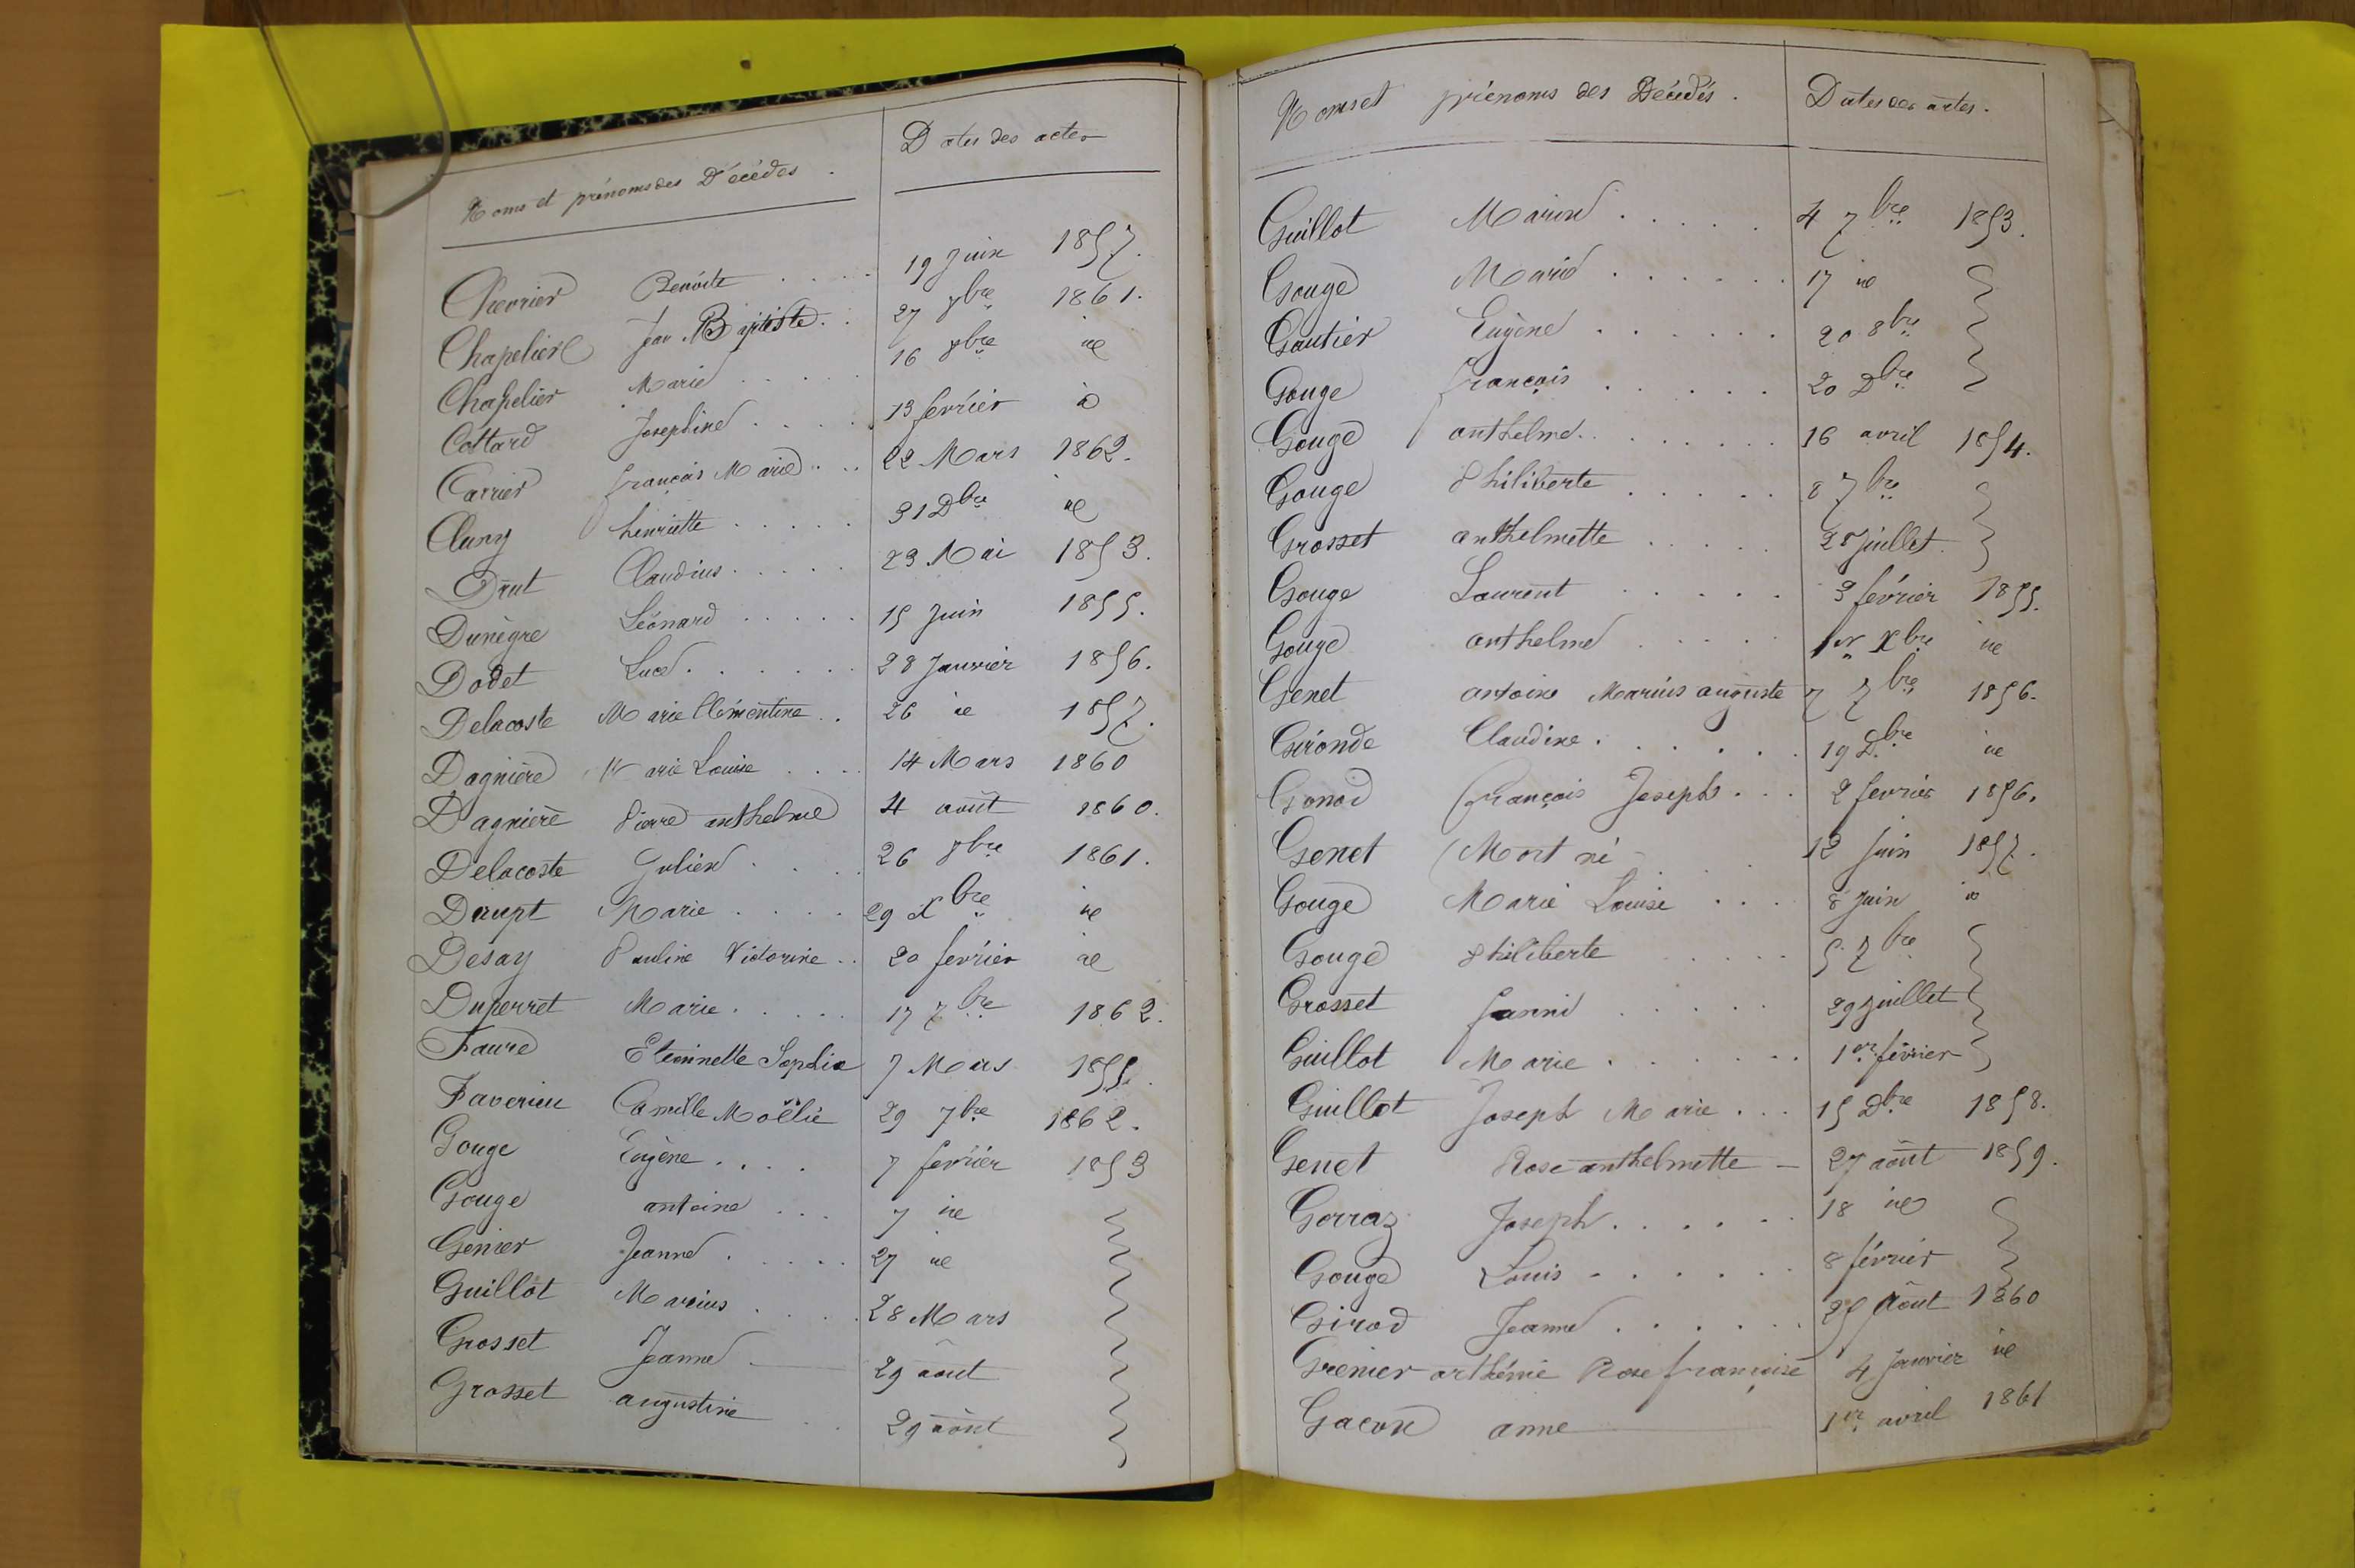 Noms et prénoms des Décédés. Dates des actes
Chevrier Benoite 19 Juin 1857.
Chapelier Jean Baptiste. 27 7bre 1861.
Chapelier Marie 16 7bre id
Cottard Josephine 13 février id
Carrier françois Marie 22 Mars 1862.
Cluny henriette 31 Dbre id
Drut Claudius 23 Mai 1853.
Dunègre Léonard 15 Juin 1855.
Dodet Luce 28 Janvier 1856.
Delacoste Marie Clémentine 26 id 1857.
Dagnière Marie Louise 14 Mars 1860
Dagnière Pierre anthelme 4 août 1860.
Delacoste Julien 26 7bre 1861.
Drupt Marie 29 Xbre id
Desay Pauline Victorine 20 février id
Duperret Marie 17 7bre 1862.
Faure Etiennette Sophie 7 Mars 1855.
Faverieu Camille Moëlie 29 7bre 1862.
Gouge Eugène 7 février 1853
Gouge antoine 7 id
Genier Jeanne 27 id
Guillot Marius 28 Mars
Grosset Jeanne 29 août
Grosset augustine 29 août
Noms et prénoms des Décédés. Dates des actes.
Guillot Marin 4 7bre 1853.
Gouge Marie 17 id
Gautier Eugène 20 8bre
Gouge françois 20 Dbre
Gouge anthelme 16 avril 1854.
Gouge Philiberte 8 7bre
Grosset anthelmette 28 juillet
Gouge Laurent 3 février 1855.
Gouge anthelme 1er Xbre id
Genet antoine Marius auguste 7 7bre 1856.
Gironde Claudine 19 Dbre id
Gonod françois Joseph 2 février 1856.
Genet (Mort né 12 juin 1857.
Gouge Marie Louise 8 juin id
Gouge Philiberte 5 7bre
Grosset fanni 29 juillet
Guillot Marie 1er février
Guillot Joseph Marie 15 Dbre 1858.
Genet Rose anthelmette 27 août 1859.
Gorraz Joseph 18 id
Gouge Louis 8 février
Girod Jeanne 25 Août 1860
Grenier arthémie Rose françoise 4 Janvier id
Gacon anne 1er avril 1861